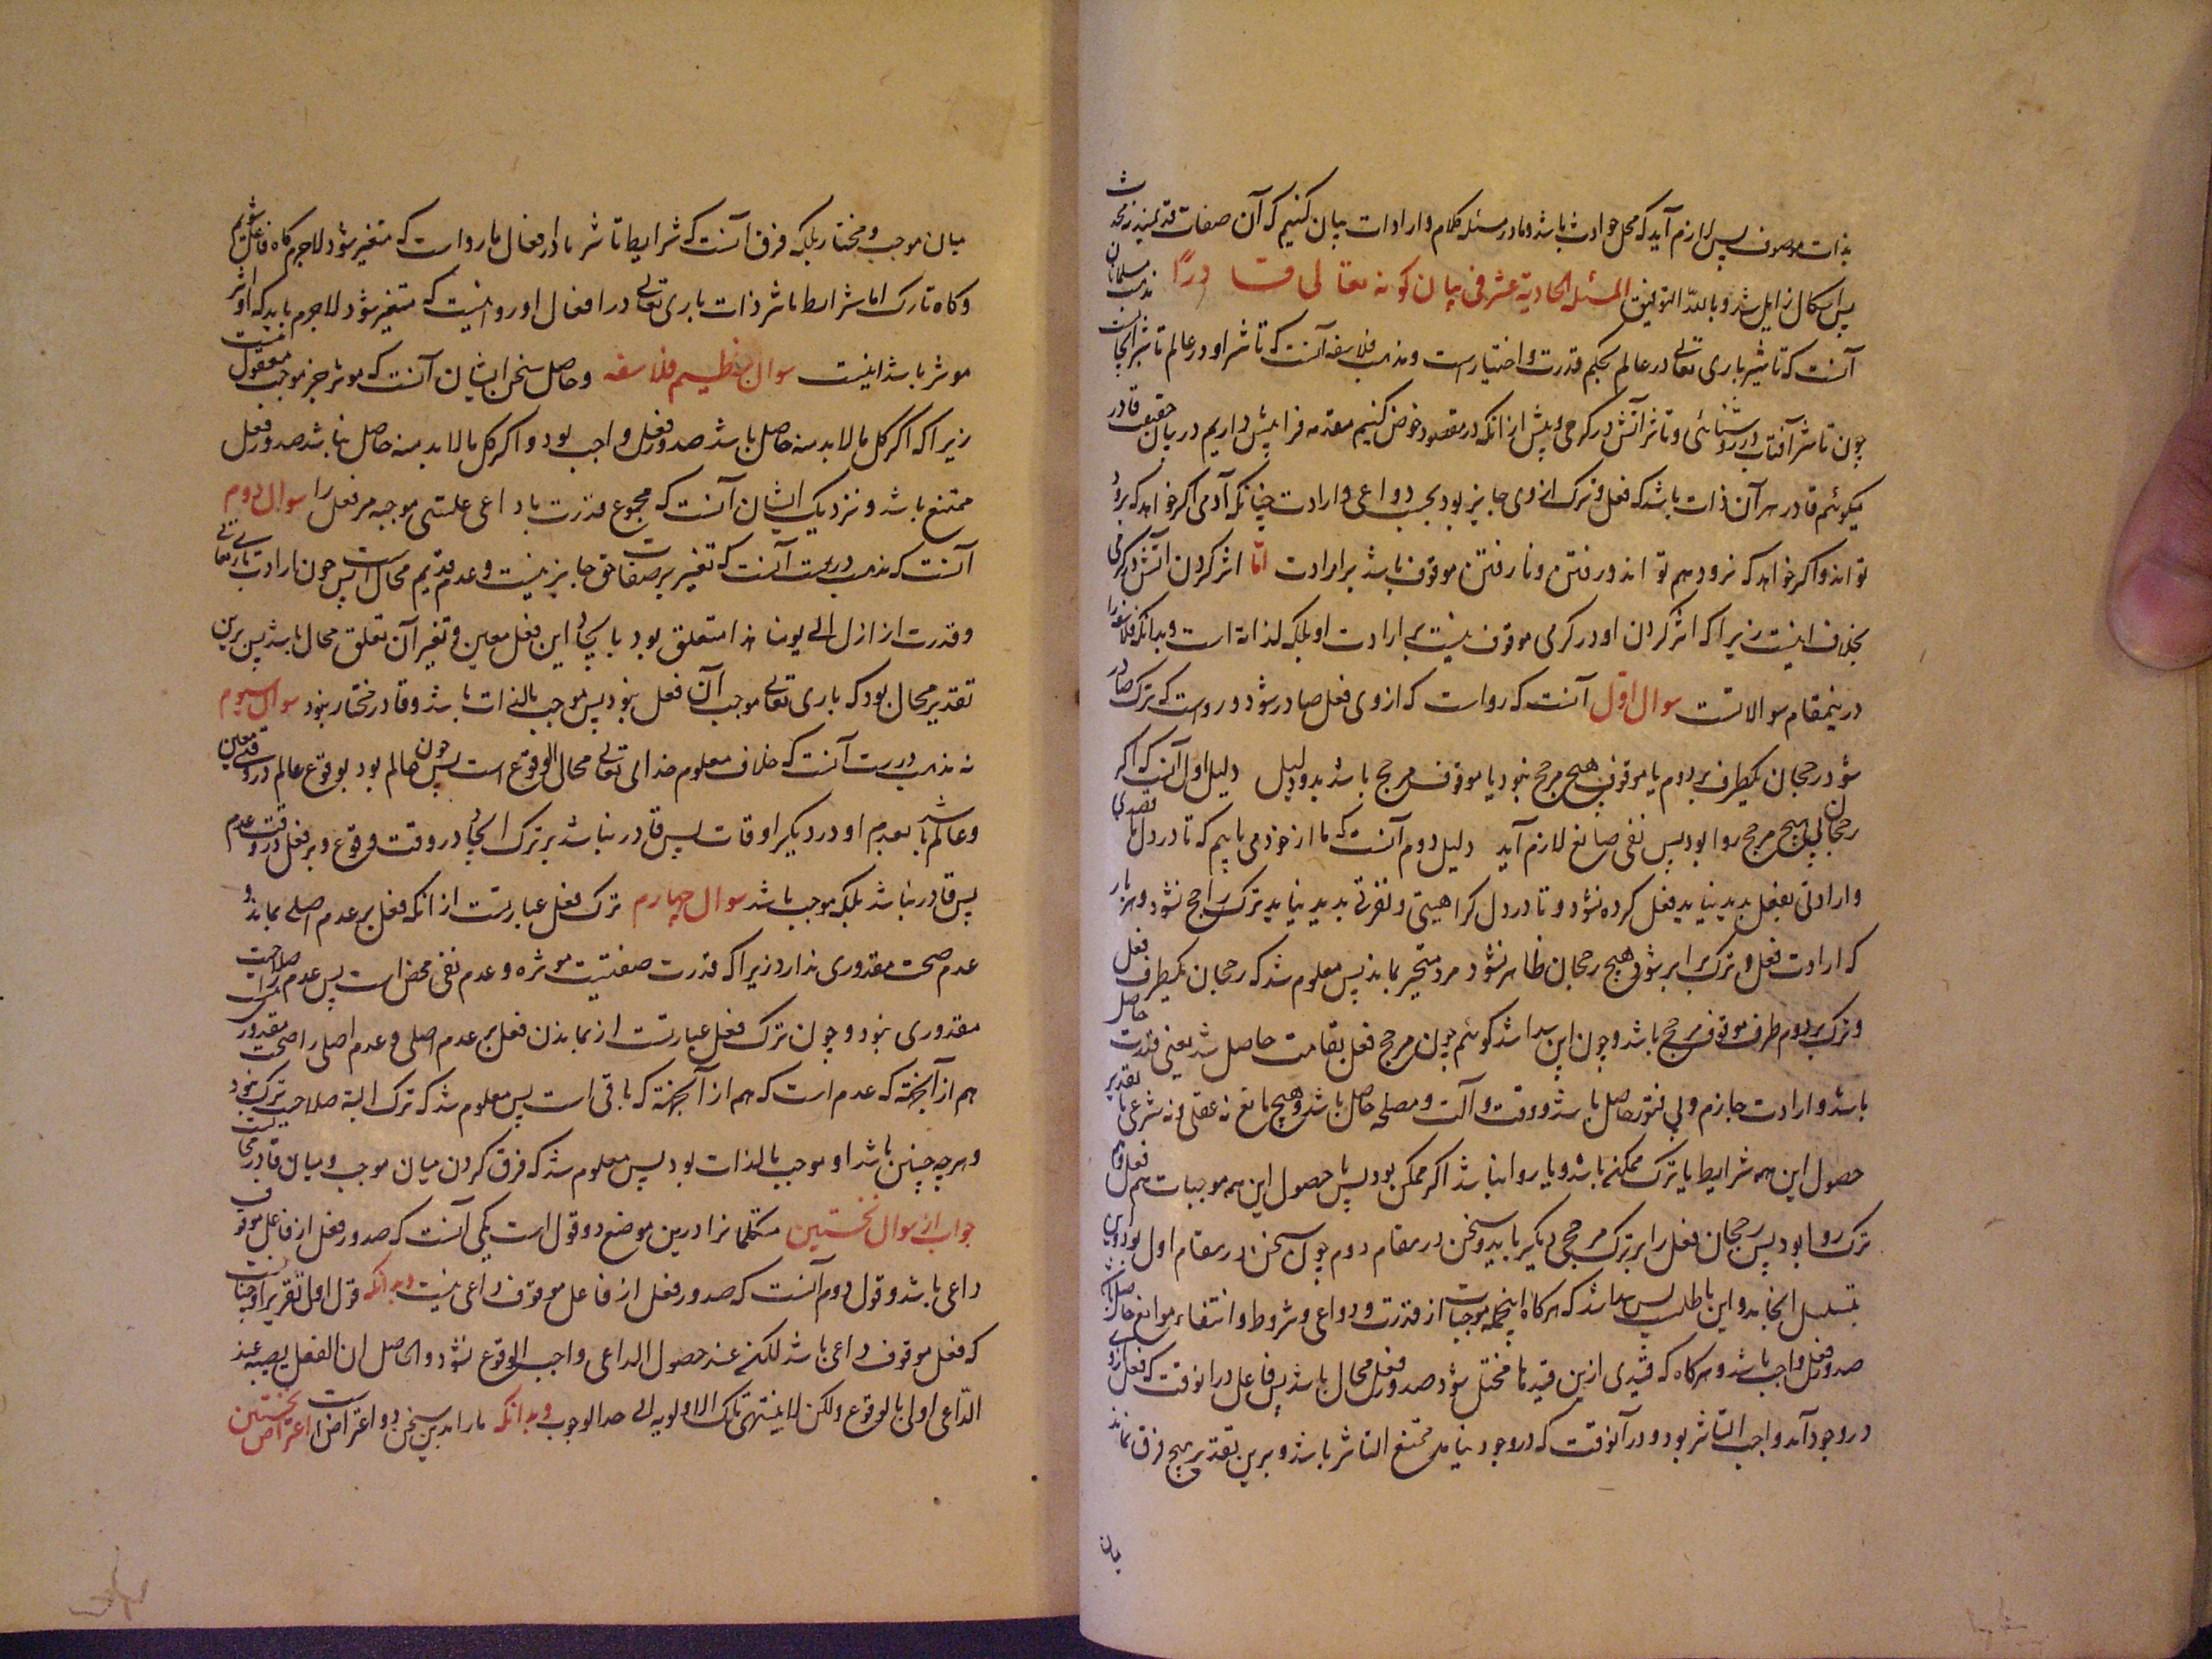 بذات موصوف پس لازم آید که محل حوادث باشد و ما در مسئله کلام و ارادات بیان کنیم که آن صفات قدیمند نه محدث
پس اشکال زایل شد و بالله التوفیق المسئله الحادیة عشر فی بیان کونه تعالی قادرًا مذهب مسلمانان
آنست که تاثیر باری تعالی در عالم بحکم قدرت و اختیارست و مذهب فلاسفه آنست که تاثیر او در عالم تاثیر ایجابست
چون تاثیر آفتاب در روشنائی و تاثیر آتش در گرمی و پیش از انکه در مقصود خوض کنیم مقدمه فرا پیش داریم در بیان حقیقت قادر
میکوئیم قادر هر آن ذات باشد که فعل و ترک از وی جایز بود بحسب دواعی و ارادت چنانکه آدمی اکر خواهد که برود
تواند و اکر خواهد که نرود هم تواند و رفتن و نارفتن موقوف باشد بر ارادت امّا اثر کردن آتش در کرمی
بخلاف اینست زیرا که اثر کردن او در کرمی موقوف نیست بر ارادت او بلکه لذاته است و بدانکه فلاسفه را
درینمقام سوالاتست سوال اوّل آنست که رواست که از وی فعل صادر شود و رواست که ترک صادر
شود رجحان یکطرف بر دوم یا موقوف هیچ مرجح نبود یا موقوف مرجح باشد بدو دلیل دلیل اول آنست که اکر
رجحان بی هیچ مرجح روا بود پس نفی صانع لازم آید دلیل دوم آنست که ما از خود می یابیم که تا در دل ما قصدی
و ارادتی بفعل بدید نیاید فعل کرده نشود و تا در دل کراهیتی و نفرتی بدید نیاید ترک راجح نشود و هر بار
که ارادت فعل و ترک برابر شود و هیچ رجحان ظاهر نشود مرد متحیر بماند پس معلوم شد که رجحان یکطرف فعل
و ترک بر دوم طرف موقوف مرجح باشد و چون این پیدا شد کوئیم چون مرجح فعل بتمامت حاصل شد یعنی قدرت حاصل
باشد و ارادت جازم و بی فتور حاصل باشد و وقت و آلت و مصلحه حاصل باشد و هیچ مانع نه عقلی و نه شرعی با تقدیر
حصول این همه شرایط یا ترک ممکن باشد و یا روا نباشد اکر ممکن بود پس با حصول این همه موجبات هم فعل و هم
ترک روا بود پس رجحان فعل را بر ترک مرجحی دیکر باید و سخن در مقام دوم چون سخن در مقام اول بود و این
بتسلسل انجامد و این باطلست پس پیدا شد که هرکاه اینجمله موجبات از قدرت و دواعی و شروط و انتفاء موانع حاصل آید
صدور فعل واجب باشد و هرکاه که قیدی ازین قیدها مختل شود صدور فعل محال باشد پس فاعل در انوقت که فعل از وی
در وجود آمد واجب التاثیر بود و در آنوقت که در وجود نیامد ممتنع التاثیر باشد و برین تقدیر هیچ فرق نماند
میان
میان موجب و مختار بلکه فرق آنست که شرایط تاثیر ما در افعال ما رواست که متغیر شود لاجرم کاه فاعل شویم
و کاه تارک اما شرایط تاثیر ذات باری تعالی در افعال او روا نیست که متغیر شود لاجرم باید که او اثر
موثر باشد اینست سوال عظیم فلاسفه و حاصل سخن ایشان آنست که موثر جز موجب معقول نیست
زیرا که اکر کل مالابد منه حاصل باشد صدور فعل واجب بود و اکر کل مالابد منه حاصل نباشد صدور فعل
ممتنع باشد و نزدیک ایشان آنست که مجموع قدرت با داعی علتی موجبه مر فعل را سوال دوم
آنست که مذهب درست آنست که تغییر بر صفات حق جایز نیست و عدم قدیم محال است پس چون ارادت باری تعالی
و قدرت از ازل الی یومنا هذا متعلق بود بایجاد این فعل معین و تغیر آن تعلق محال باشد پس برین
تقدیر محال بود که باری تعالی موجب آن فعل نبود پس موجب بالذات باشد و قادر مختار نبود سوال سیوم
نه مذهب درست آنست که خلاف معلوم خدای تعالی محال الوقوع است پس چون عالم بود بوقوع عالم در وقتی معین
و عالم باشد بعدم او در دیکر اوقات پس قادر نباشد بر ترک ایجاد در وقت وقوع و بر فعل در وقت عدم
پس قادر نباشد بلکه موجب باشد سوال چهارم ترک فعل عبارتست از انکه فعل بر عدم اصلی بماند و
عدم صحت مقدوری ندارد زیرا که قدرت صفتیست موثره و عدم نفی محض است پس عدم را صلاحیت
مقدوری نبود و چون ترک فعل عبارتست از بماندن فعل بر عدم اصلی و عدم اصلی را صحت مقدوری نیست
هم از آنجهته که عدم است که هم از آنجهته که باقی است پس معلوم شد که ترک البته صلاحیت ترک نبود
و هرچه چنین باشد او موجب بالذات بود پس معلوم شد که فرق کردن میان موجب و میان قادر محالست
جواب از سوال نخستین متکلمانرا درین موضع دو قول است یکی آنست که صدور فعل از فاعل موقوف
داعی باشد و قول دوم آنست که صدور فعل از فاعل موقوف داعی نیست و بدانکه قول اول تقریر او چنانست
که فعل موقوف داعی باشد لکن عند حصول الداعی واجب الوقوع نشود و الحاصل ان الفعل یصیر عند
الدّاعی اولی بالوقوع ولکن لا ینتهی تلک الاولویه الی حد الوجوب و بدانکه ما را بدین سخن دو اعتراض است اعتراض نخستین